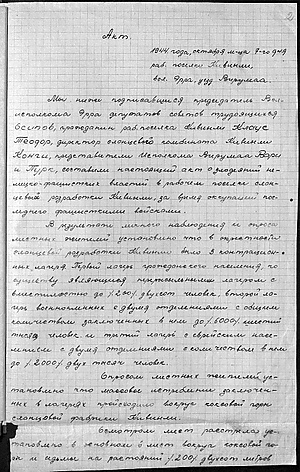 2
Акт.
1944 года, октября м-ца 7-го дня
раб. поселок Кивиыли,
вол. Эрра, уезд Вирумаа.
Мы ниже подписавшиеся председатель Вол-
исполкома Эрра депутатов советов трудящихся
Оситов, пропагандист раб. поселка Кивиыли Клаус
Теодор, директор сланцевого комбината Кивиыли
Конги, представители Исполкома Вирумаа Вари
и Пурк, составили настоящий акт о злодеяний не-
мецко-фашистских властей в рабочем поселке слан-
цевый разработки Кивиыли, за время оккупации пос-
леднего фашистскими войсками.
В результате личного наблюдения и опроса
местных жителей установлено что в окрестностях
сланцевой разработки Кивиыли было 3 концентрацион-
ных лагеря. Первый лагерь гражданского населения, по
существу являющееся принудительным лагерем с
вместимостью до /200/ двухсот человек, второй ла-
герь военнопленных с двумя отделениями с общим
количеством заключенных в нем до /6000/ шести
тысяч человек и третий лагерь с еврейским насе-
лением с двумя отделениями с количеством в нем
до /2000/ двух тысяч человек.
Опросом местных жителей, ус-
тановлено что массовое истребление заключен-
ных в лагерях происходило вокруг коксовой горы
сланцевой фабрики Кивиыли.
Осмотром мест расстрела ус-
тановлено в основном 6 мест вокруг коксовой го-
ры и идемы на расстояний /200/ двухсот метров